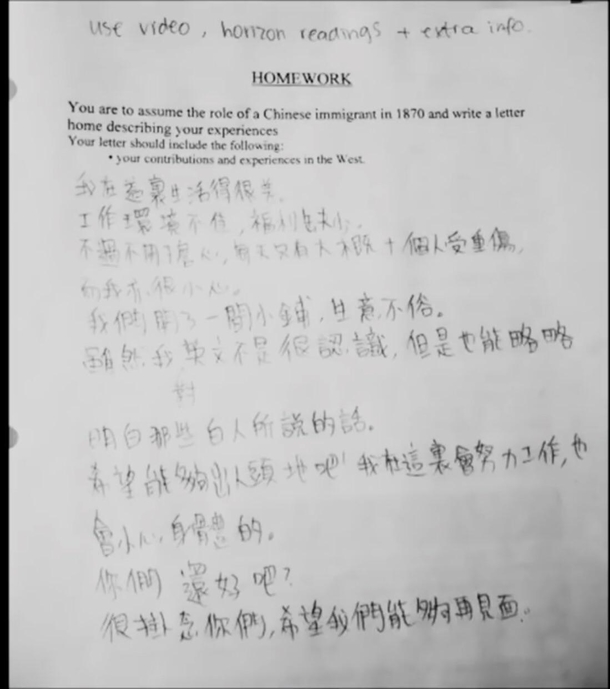 use video, horizon readings + extra info.
HOMEWORK
You are to assume the role of a Chinese immigrant in 1870 and write a letter
home describing your experiences
Your letter should include the following:
• your contributions and experiences in the West.
我在這裏生活得很差。
工作環境不佳,福利也缺少,
不過不用擔心,每天只有大概十個人受重傷,
而我亦很小心。
我們開了一間小鋪,生意不俗。
雖然我英文不是很認識,但是也能略略
對
明白那些白人所說的話。
希望能夠出人頭地吧!我在這裏會努力工作,也
會小心身體的。
你們還好吧?
很掛念你們,希望我們能夠再見面。